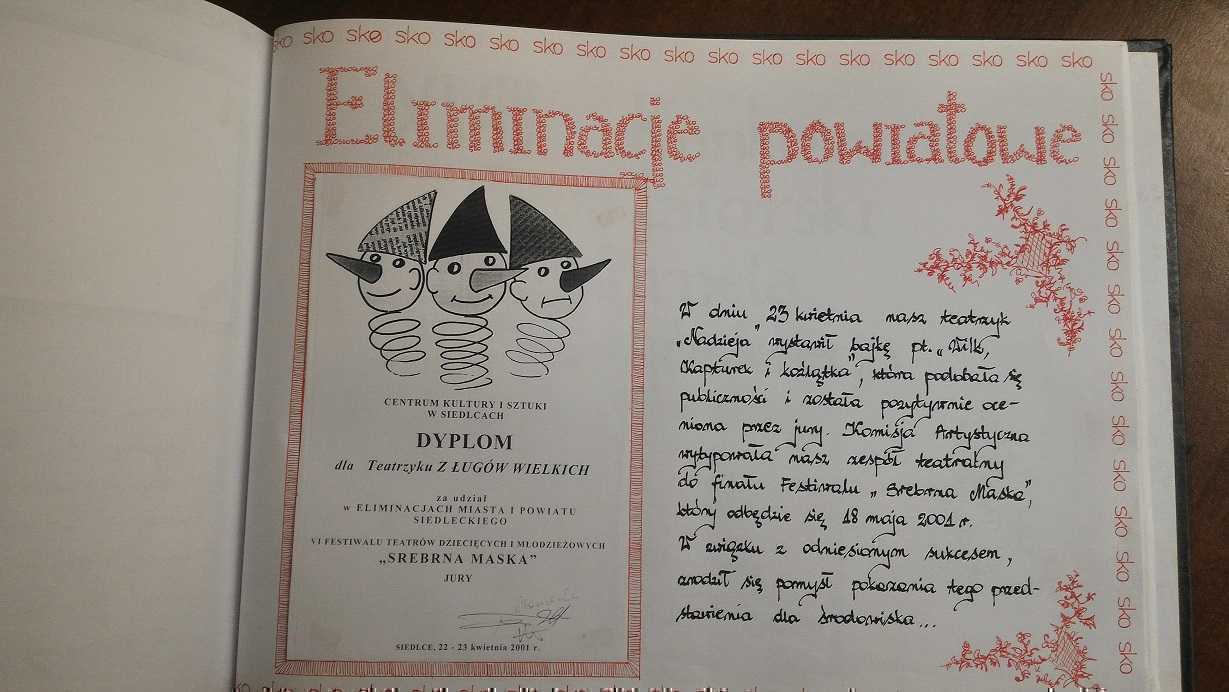 sko sko sko sko sko sko sko sko sko sko sko sko sko sko sko sko sko sko sko
Eliminacje powiatowe
CENTRUM KULTURY I SZTUKI
W SIEDLCACH
DYPLOM
dla Teatrzyku Z ŁUGÓW WIELKICH
za udział
w ELIMINACJACH MIASTA I POWIATU
SIEDLECKIEGO
VI FESTIWALU TEATRÓW DZIECIĘCYCH I MŁODZIEŻOWYCH
„SREBRNA MASKA”
JURY
SIEDLCE, 22 - 23 kwietnia 2001 r.
W dniu 23 kwietnia nasz teatrzyk
„Nadzieja” wystawił bajkę pt. „Wilk,
Kapturek i koźlątka”, która podobała się
publiczności i została pozytywnie oce-
niona przez jury. Komisja Artystyczna
wytypowała nasz zespół teatralny
do finału Festiwalu „Srebrna Maska”,
który odbędzie się 18 maja 2001 r.
W związku z odniesionym sukcesem,
zrodził się pomysł pokazania tego przed-
stawienia dla środowiska...
sko
sko
sko
sko
sko
sko
sko
sko
sko
sko
sko
sko
sko
sko